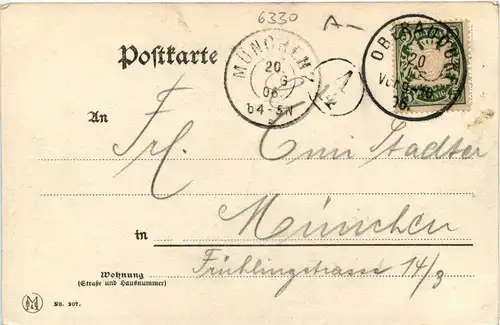 6330 A-
Postkarte
MÜNCHEN 2
20
6
06
b4-5N
OBERAUDORF
20
Vorm.
06.
An Frl. Emi Stadter
in München
Wohnung Frühlingstrasse 14/3
(Straße und Hausnummer)
M No. 907.